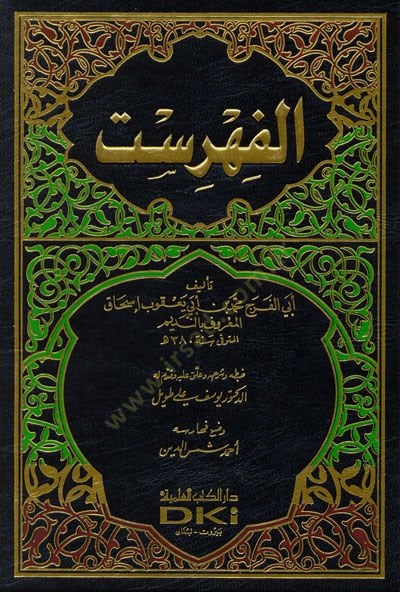 الفِهْرِسْت
تأليف
أبي الفرج محمد بن أبي يعقوب إسحاق
المعروف بالنديم
المتوفى سنة ٣٨٠ هـ
ضبطه وشرحه وعلق عليه وقدم له
الدكتور يوسف علي طويل
وضع فهارسه
أحمد شمس الدين
دار الكتب العلمية
DKi
بيروت - لبنان